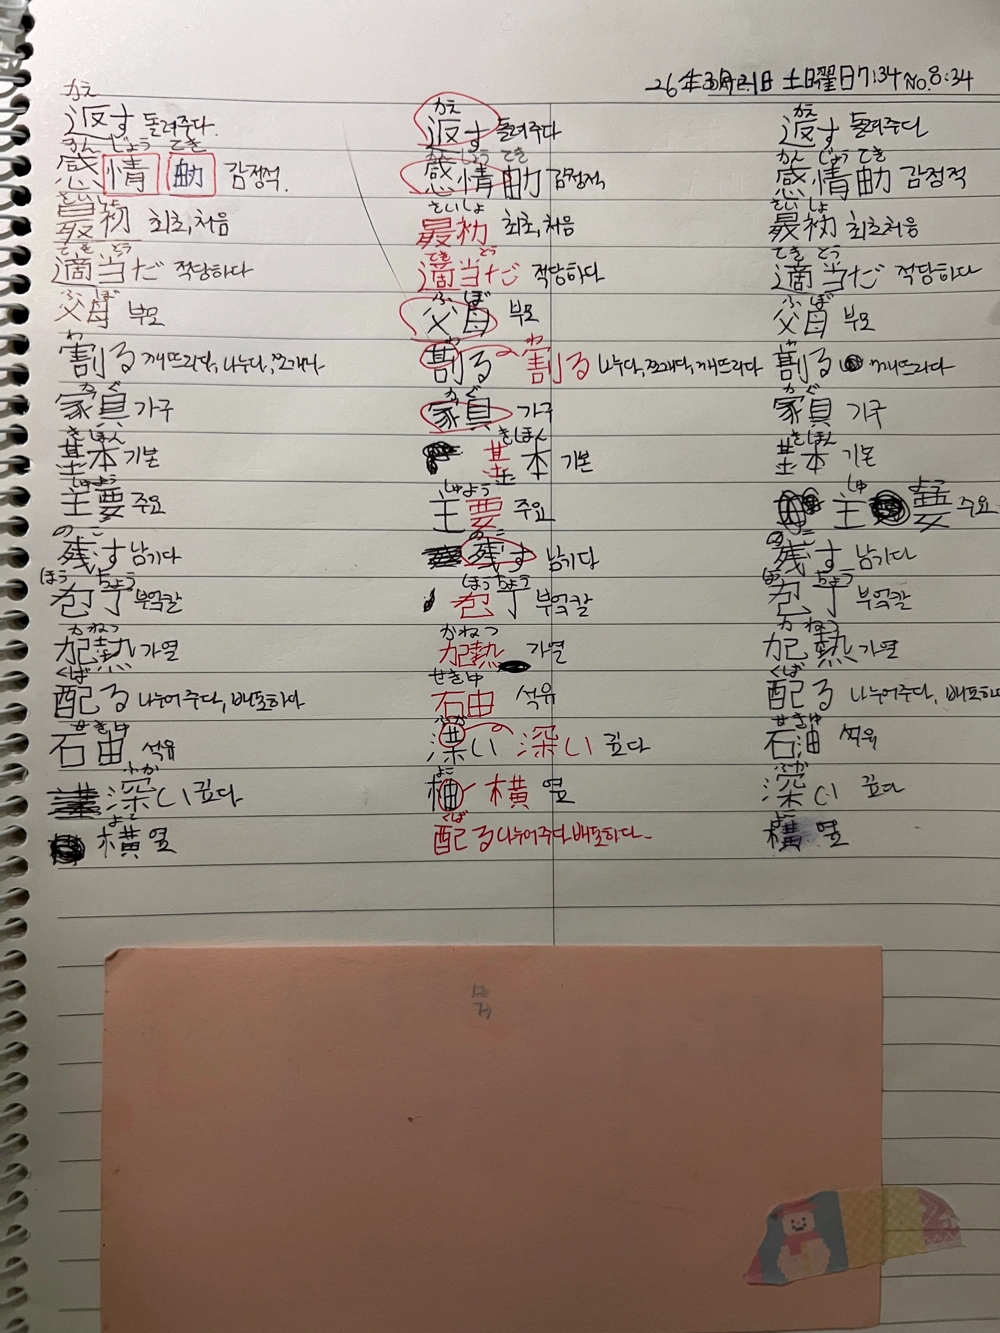 26年3月21日 土曜日7:34 No.8:34
かえ かえ
返す 돌려주다. 返す 돌려주다 返す 돌려주다
かん じょう てき かん じょう てき かん じょう てき
感情 감정적. 感情 감정적 感情 감정적
さいしょ さいしょ さいしょ
最初 최초, 처음 最初 최초, 처음 最初 최초처음
てき とう てき とう てき とう
適当だ 적당하다 適当だ 적당하다 適当だ 적당하다
ふ ぼ ふ ぼ ふ ぼ
父母 부모 父母 부모 父母 부모
わ わ わ わ
割る 깨뜨리다, 나누다, 쪼개다 割る 割る 나누다, 쪼개다, 깨뜨리다 割る 깨뜨리다
かぐ かぐ かぐ
家具 가구 家具 가구 家具 기구
きほん きほん きほん
基本 기본 基本 기본 基本 기본
しゅよう しゅよう しゅ よう
主要 주요 主要 주요 主要 주요
のこ のこ のこ
残す 남기다 残す 남기다 残す 남기다
ほう ちょう ほうちょう ほう ちょう
包丁 부엌칼 包丁 부엌칼 包丁 부엌칼
かねつ かねつ かねつ
加熱 가열 加熱 가열 加熱 가열
くば せきゆ くば
配る 나누어주다, 배포하다 石由 석유 配る 나누어주다, 배포하
せきゆ ふか せきゆ
石由 석유 深い 深い 깊다 石油 석유
ふか よこ ふか
深い 깊다 横 옆 深い 깊다
よこ くば よこ
横 옆 配る 나누어주다 배포하다. 横 옆